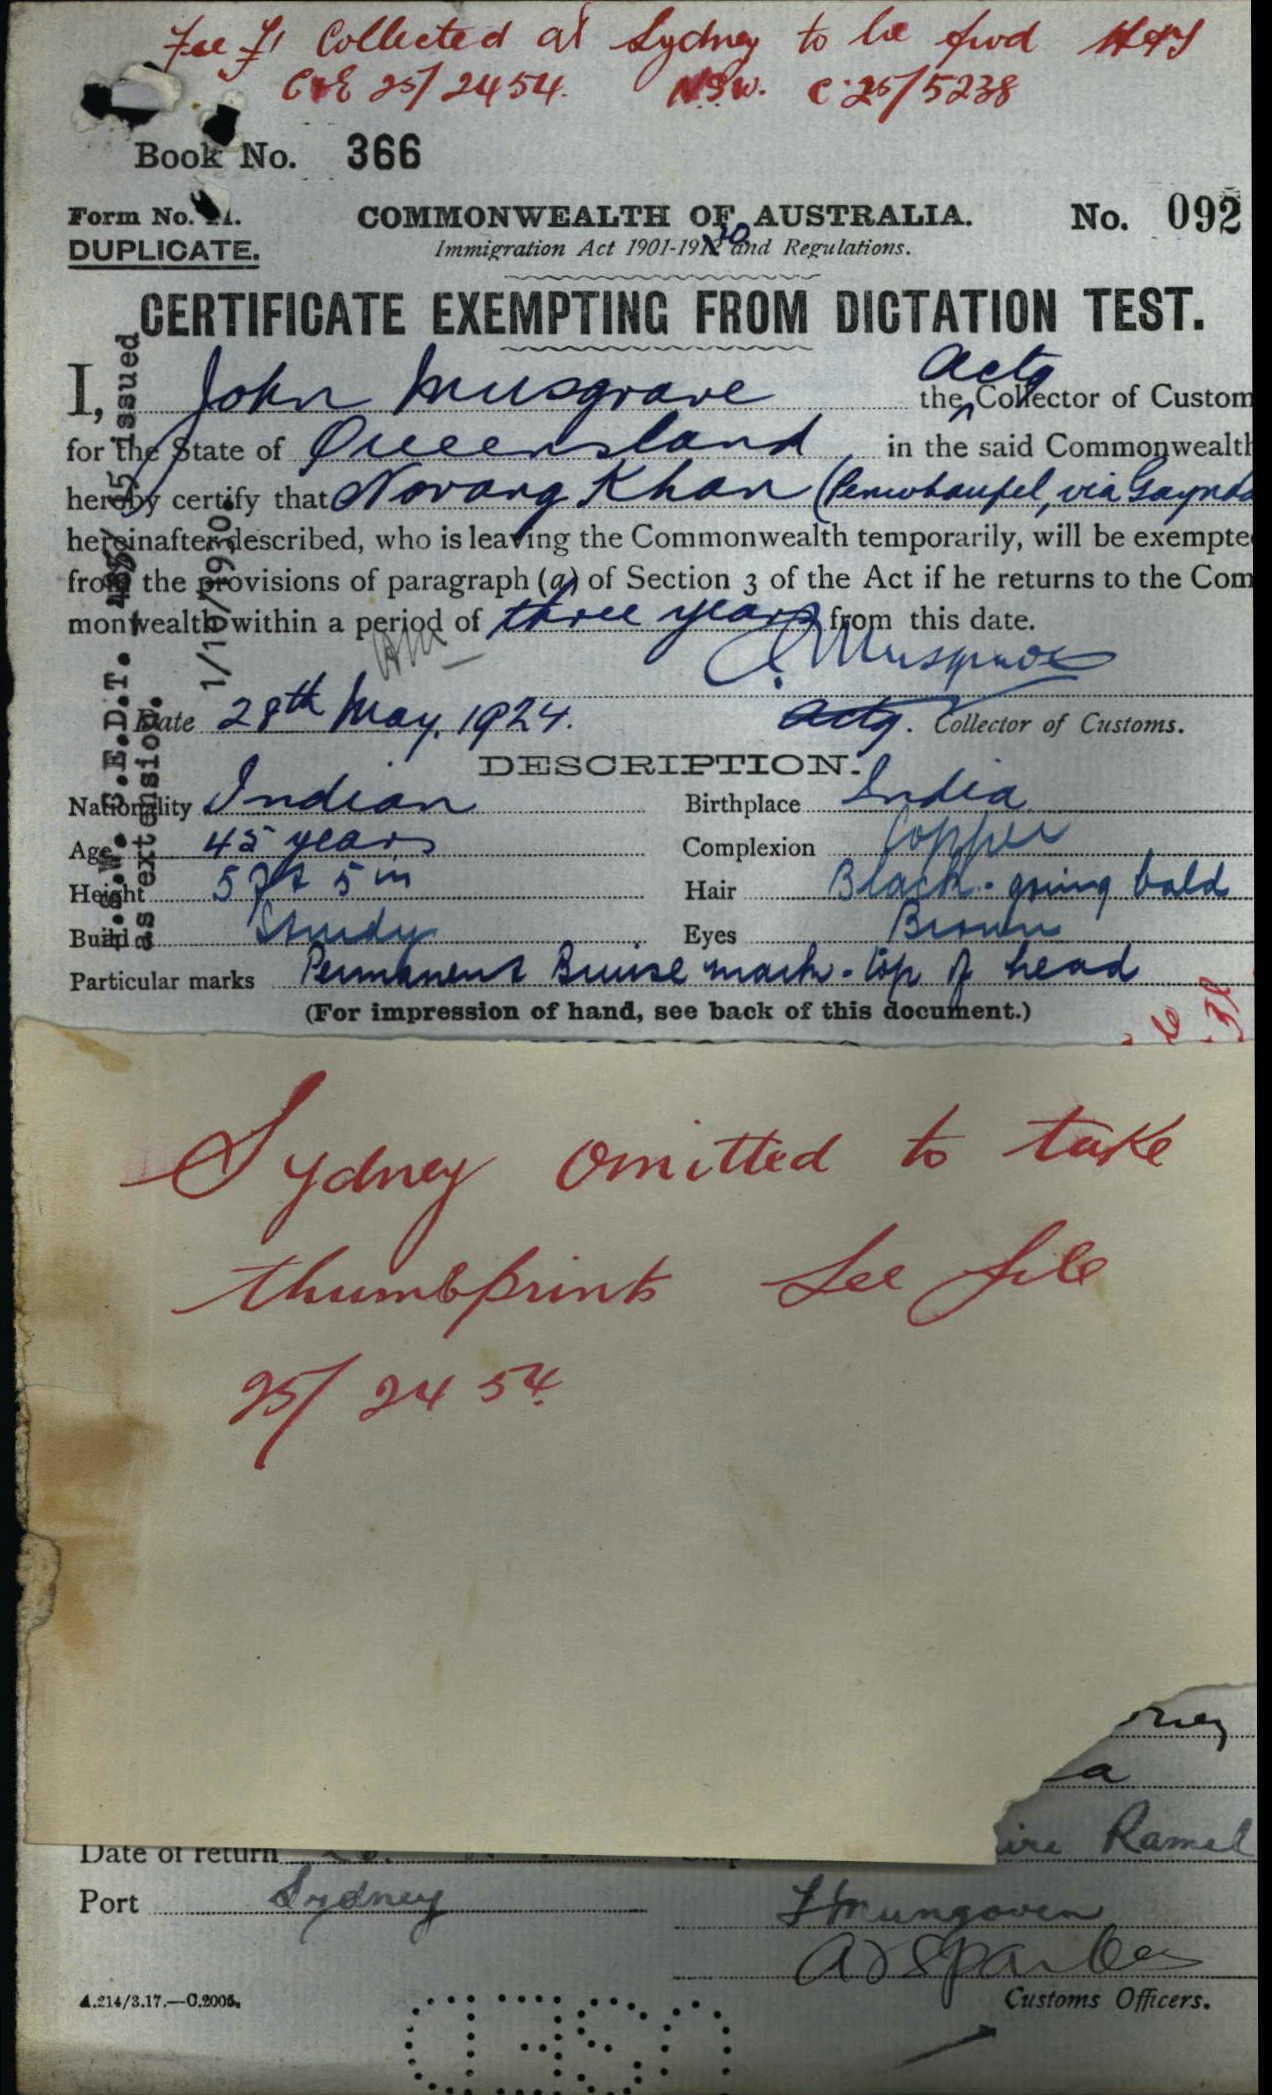 Fee £1 Collected at Sydney to be fwd
C&E 25/2454. N.S.W. C.25/5238
Book No. 366
Form No. 21.
COMMONWEALTH OF AUSTRALIA.
No. 092
DUPLICATE.
Immigration Act 1901-1912 20 and Regulations.
CERTIFICATE EXEMPTING FROM DICTATION TEST.
I, John Musgrave the Actg Collector of Custom
for the State of Queensland in the said Commonwealth
hereby certify that Norang Khan ( via Gaynda
hereinafter described, who is leaving the Commonwealth temporarily, will be exempte
from the provisions of paragraph (a) of Section 3 of the Act if he returns to the Com
monwealth within a period of three years from this date.
J. Musgrave
Date 28th May, 1924. Actg. Collector of Customs.
DESCRIPTION.
Nationality Indian Birthplace India
Age 45 years Complexion Copper
Height 5 ft 5 in Hair Black - going bald
Build Sturdy Eyes Brown
Particular marks Permanent Bruise mark - top of head
(For impression of hand, see back of this document.)
issued
as extension.
1/10/1930.
Sydney omitted to take
thumbprints See file
25/2454
ney
a
Date of return Ramel
Port Sydney
Customs Officers.
A.214/3.17.—C.2005.